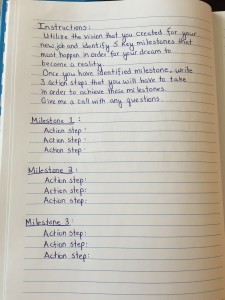 Instructions:
Utilize the vision that you created for your
new job and identify 5 key milestones that
must happen in order for your dream to
become a reality.
Once you have identified milestone, write
3 action steps that you will have to take
in order to achieve these milestones.
Give me a call with any questions
Milestone 1:
Action step:
Action step:
Action step:
Milestone 2:
Action step:
Action step:
Action step:
Milestone 3:
Action step:
Action step:
Action step: